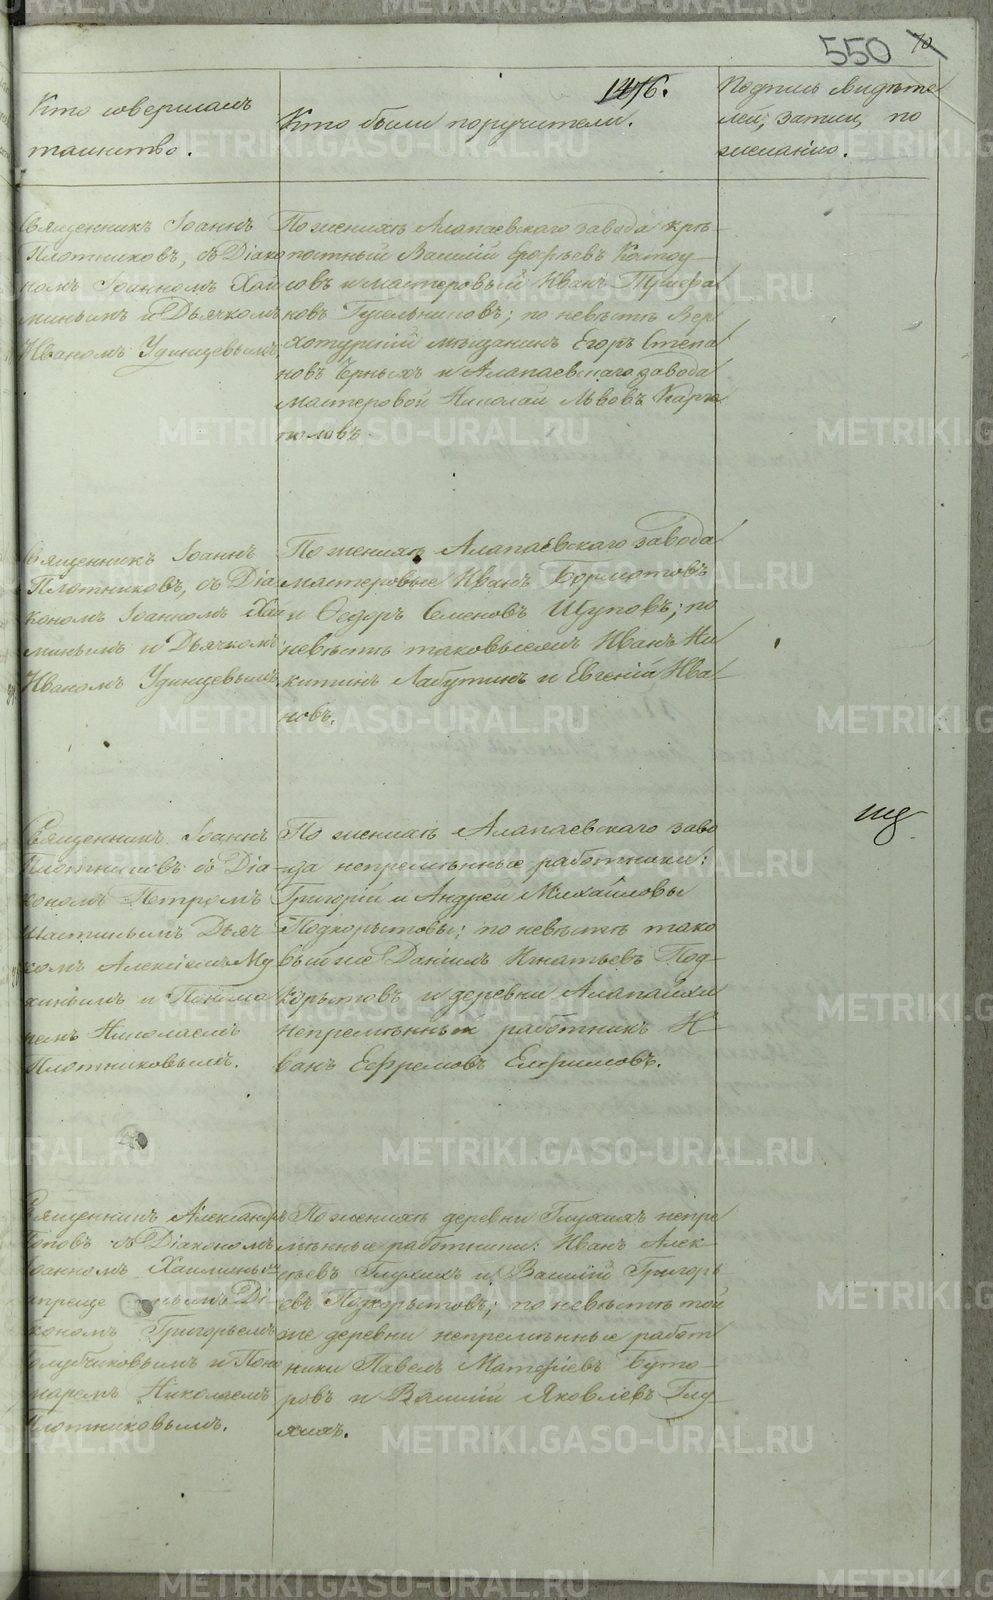 550 70
1476.
Кто совершалъ
таинство.
Кто были поручители.
Подпись свидѣте
лей, записи, по
желанію.
Священникъ Іоаннъ
Плотниковъ, съ Діако
номъ Іоанномъ Хал
минымъ и Дьячкомъ
Иваномъ Удинцевымъ
По женихѣ Алапаевскаго завода крѣ
постный Василій
и мастеровый Иванъ Трифа
новъ Гусельниковъ; по невѣстѣ Вер
хотурскій мѣщанинъ Егоръ Степа
новъ Черныхъ и Алапаевскаго завода
мастеровой Николай Львовъ Карга
половъ.
Священникъ Іоаннъ
Плотниковъ, съ Діа
кономъ Іоанномъ Хал
минымъ и Дьячкомъ
Иваномъ Удинцевымъ
По женихѣ Алапаевскаго завода
мастеровые Иванъ Бормотовъ
и Ѳедоръ Семеновъ Шуповъ; по
невѣстѣ таковыеже Иванъ Ни
китинъ Лабутинъ и Евгеній Ива
новъ.
Священникъ Іоаннъ
Плотниковъ съ Діа
кономъ Петромъ
Дьяч
комъ Алексіемъ Му
хинымъ и Понома
ремъ Николаемъ
Плотниковымъ.
По женихѣ Алапаевскаго заво
да непремѣнные работники:
Григорій и Андрей Михайловы
Подкорытовы; по невѣстѣ тако
выеже Даніилъ Игнатьевъ Под
корытовъ и деревни Алапаихи
непремѣнный работникъ И
ванъ Ефремовъ Елфимовъ.
Священникъ Александръ
Поповъ съ Діакономъ
Іоанномъ Халминымъ
Ді
кономъ Григорьемъ
Голубчиковымъ и Поно
маремъ Николаемъ
Плотниковымъ.
По женихѣ деревни Глухихъ непре
мѣнные работники: Иванъ Алек
сѣевъ Глухихъ и Василій Григорь
евъ Подкорытовъ; по невѣстѣ той
же деревни непремѣнные работ
ники Павелъ Матвѣевъ Буто
ровъ и Василій Яковлевъ Глу
хихъ.
METRIKI.GASO-URAL.RU